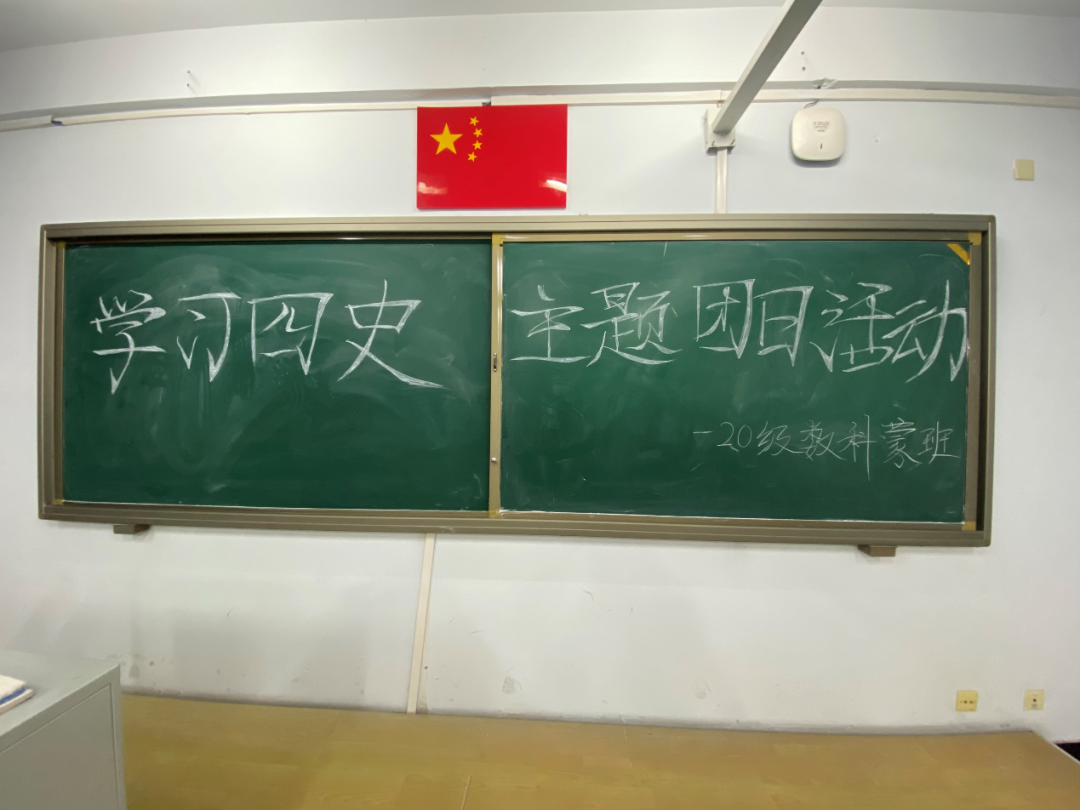 学习四史 主题团日活动
-20级数科蒙班